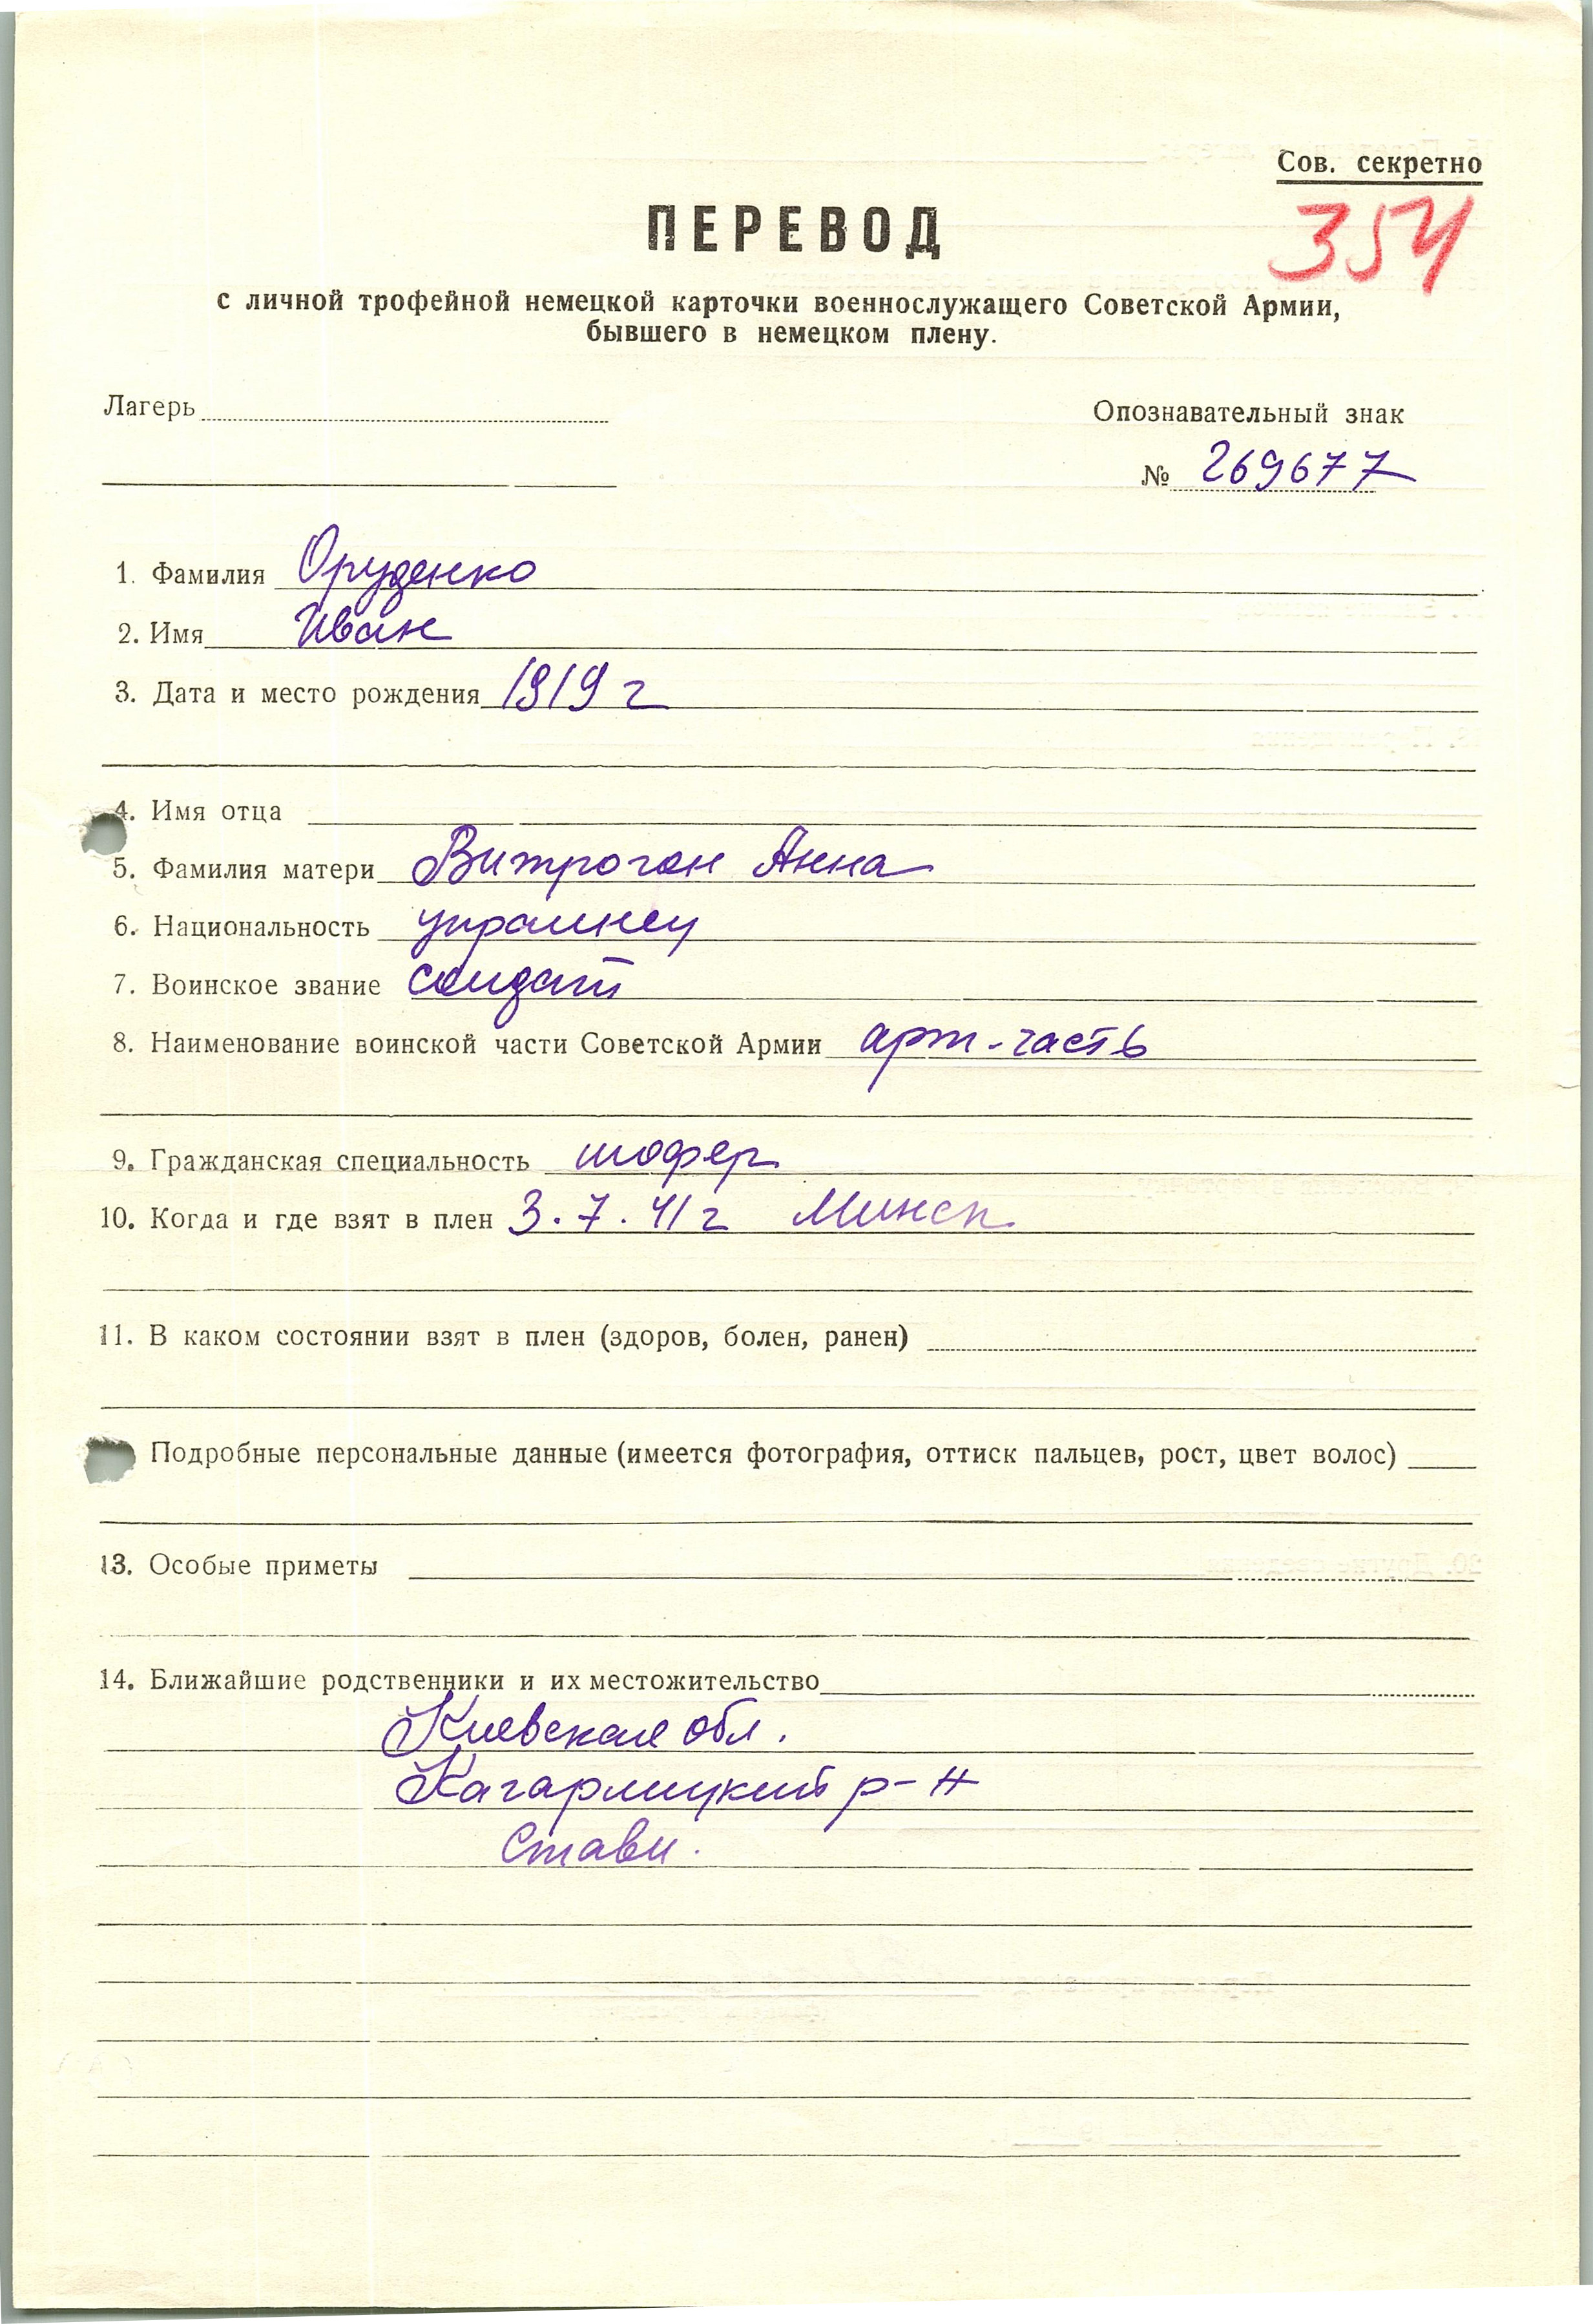 Сов. секретно
354
ПЕРЕВОД
с личной трофейной немецкой карточки военнослужащего Советской Армии,
бывшего в немецком плену.
Лагерь
Опознавательный знак
№ 269677
1. Фамилия Оруденко
2. Имя Иван
3. Дата и место рождения 1919 г
4. Имя отца
5. Фамилия матери Витрогон Анна
6. Национальность украинец
7. Воинское звание солдат
8. Наименование воинской части Советской Армии арт-часть
9. Гражданская специальность шофер
10. Когда и где взят в плен 3.7.41 г Минск
11. В каком состоянии взят в плен (здоров, болен, ранен)
Подробные персональные данные (имеется фотография, оттиск пальцев, рост, цвет волос)
13. Особые приметы
14. Ближайшие родственники и их местожительство
Киевская обл.
Кагарлицкий р-н
Стави.